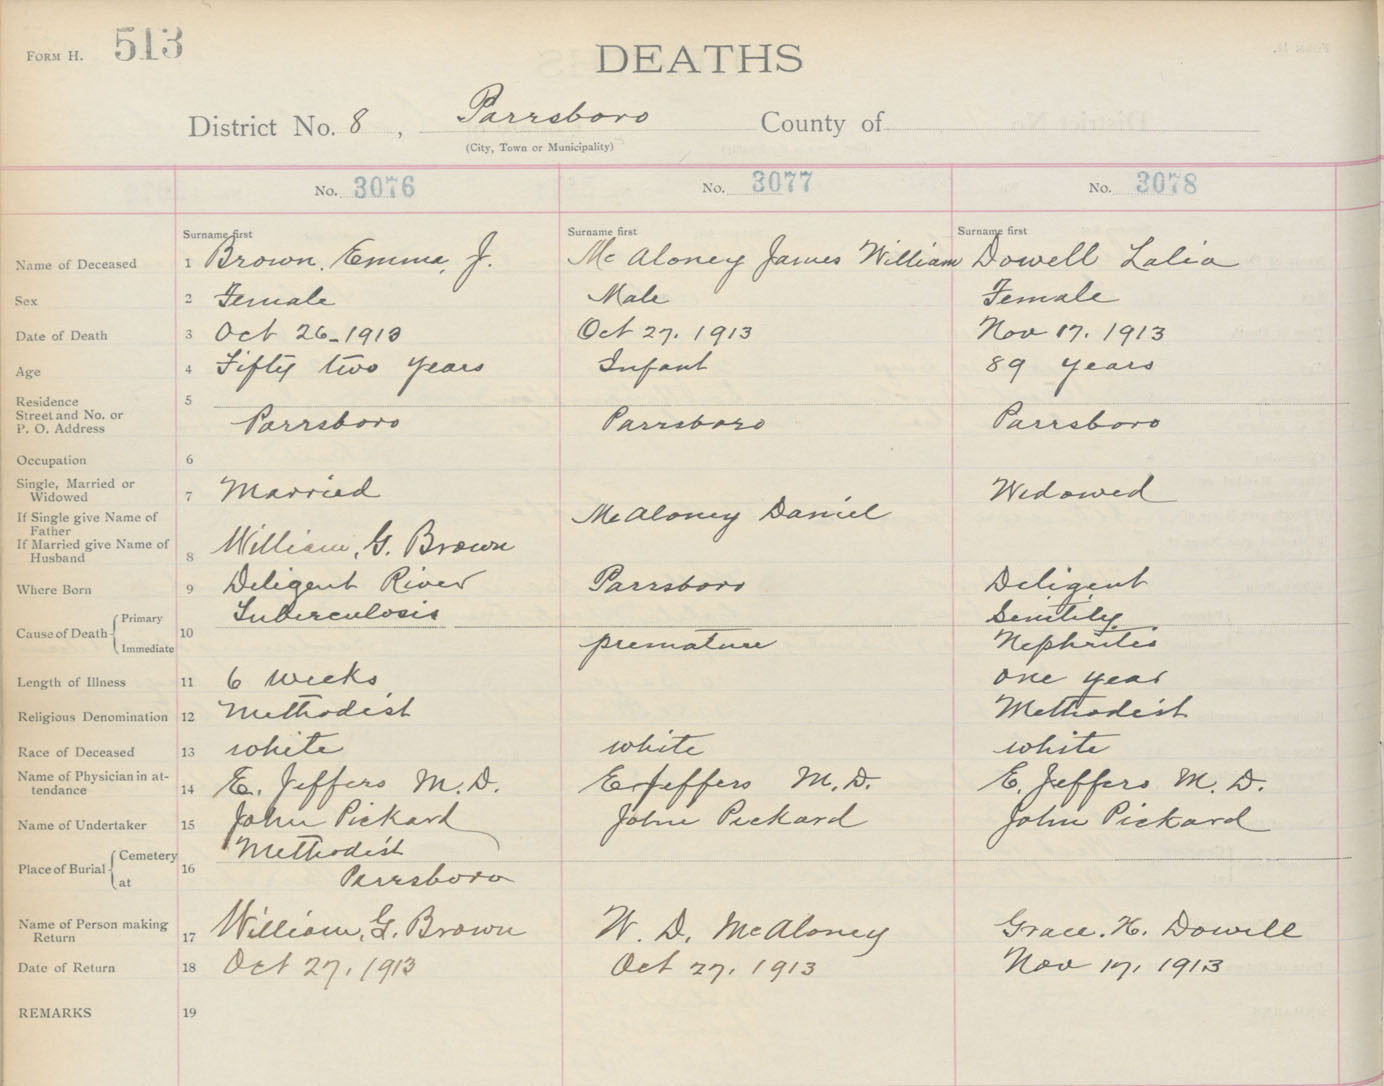 FORM H. 513
DEATHS
District No. 8, Parrsboro County of
(City, Town or Municipality)
No. 3076 No. 3077 No. 3078
Surname first Surname first Surname first
Name of Deceased 1 Brown, Emma, J. McAloney James William Dowell Lalia
Sex 2 Female Male Female
Date of Death 3 Oct 26-1913 Oct 27, 1913 Nov 17, 1913
Age 4 Fifty two years Infant 89 years
Residence 5
Street and No. or
P. O. Address Parrsboro Parrsboro Parrsboro
Occupation 6
Single, Married or
Widowed 7 Married Widowed
If Single give Name of
Father McAloney Daniel
If Married give Name of
Husband 8 William, G. Brown
Where Born 9 Deligent River Parrsboro Deligent
Cause of Death Primary Tuberculosis Senitily
10 Immediate premature Nephritis
Length of Illness 11 6 weeks one year
Religious Denomination 12 Methodist Methodist
Race of Deceased 13 white white white
Name of Physician in at-
tendance 14 E. Jeffers M.D. E Jeffers M.D. E. Jeffers M.D.
Name of Undertaker 15 John Pickard John Pickard John Pickard
Place of Burial Cemetery Methodist
16 at Parrsboro
Name of Person making
Return 17 William, G. Brown W. D. McAloney Grace. H. Dowell
Date of Return 18 Oct 27, 1913 Oct 27, 1913 Nov 17, 1913
REMARKS 19